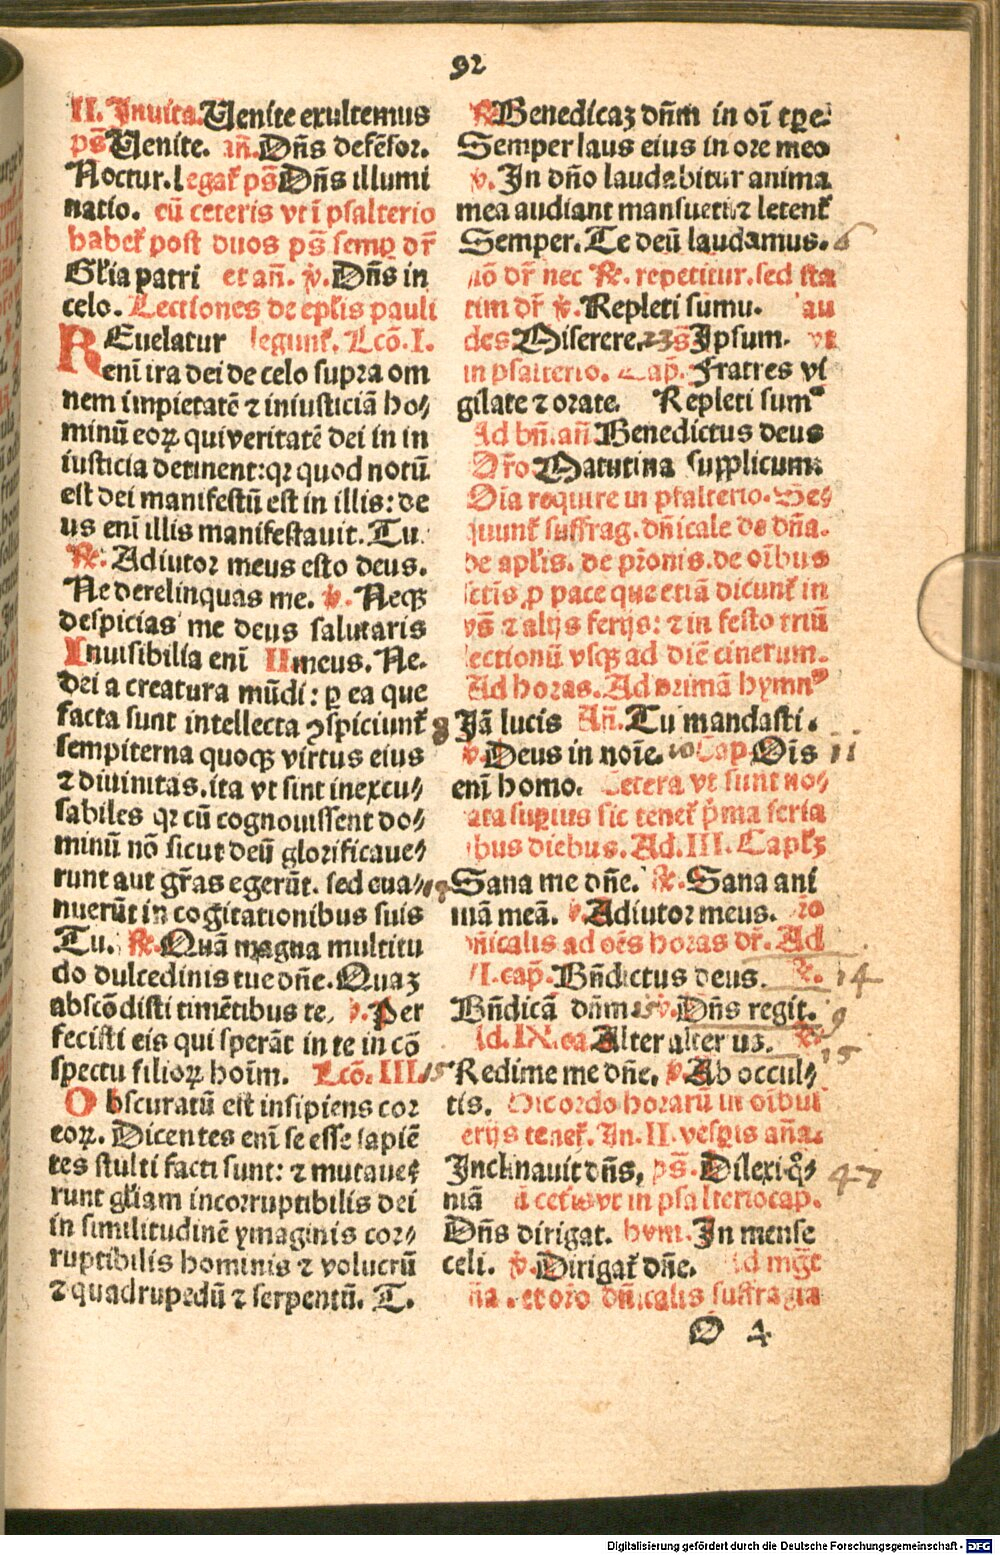 92
II. Inuita. Uenite exultemus
ps̄ Uenite. añ. Dñs defēsor.
Noctur. legat̄ ps̄ Dñs illumi
natio. cū ceteris vt ī psalterio
habet̄ post duos ps̄ semꝑ dr̄
Gl̄ia patri et añ. v̄. Dñs in
celo. Lectiones de ep̄lis pauli
REuelatur legunt̄. Lcō. I.
enī ira dei de celo supra om
nem impietatē ⁊ iniusticiā ho⸗
minū eoꝝ qui veritatē dei in in
iusticia detinent: qꝛ quod notū
est dei manifestū est in illis: de
us enī illis manifestauit. Tu.
℟. Adiutor meus esto deus.
Ne derelinquas me. v̄. Neqꝫ
despicias me deus salutaris
Inuisibilia enī II meus. Ne.
dei a creatura mūdi: ꝑ ea que
facta sunt intellecta ꝯspiciunt̄
sempiterna quoqꝫ virtus eius
⁊ diuinitas. ita vt sint inexcu⸗
sabiles qꝛ cū cognouissent do⸗
minū nō sicut deū glorificaue⸗
runt aut gr̄as egerūt. sed eua⸗
nuerūt in cogitationibus suis
Tu. ℟. Quā magna multitu
do dulcedinis tue dñe. Quaꝫ
abscōdisti timētibus te. v̄. Per
fecisti eis qui sperāt in te in cō
spectu filioꝝ hoīm. Lcō. III.
Obscuratū est insipiens cor
eoꝝ. Dicentes enī se esse sapiē
tes stulti facti sunt: ⁊ mutaue⸗
runt gl̄iam incorruptibilis dei
in similitudinē ymaginis cor⸗
ruptibilis hominis ⁊ volucrū
⁊ quadrupedū ⁊ serpentū. T.
℟. Benedicaꝫ dñm in oī tꝑe:
Semper laus eius in ore meo
v̄. In dño laudabitur anima
mea audiant mansueti ⁊ letent̄
Semper. Te deū laudamus. 6
nō dr̄ nec ℟. repetitur. sed sta
tim dr̄ v̄. Repleti sumu. au
des Miserere. ps̄ Ipsum. vt
in psalterio. Cap̄. Fratres vi
gilate ⁊ orate. Repleti sumꝰ
Ad bñ. añ Benedictus deus
Oro Matutina supplicum:
Oīa require in psalterio. Se⸗
quunt̄ suffrag. dñicale de dña.
de apl̄is. de pr̄onis. de oībus
sct̄is ꝓ pace que etiā dicunt̄ in
vs̄ ⁊ alijs ferijs: ⁊ in festo triū
lectionū vsqꝫ ad diē cinerum.
Ad horas. Ad primā hymnꝰ
8 Jā lucis Añ. Tu mandasti.
v̄. Deus in noīe. 10 Cap. Oīs 11
enī homo. Cetera vt sunt no⸗
tata superius sic tenet̄ p̄ma feria
ibus diebus. Ad. III. Capl̄ꝫ
Sana me dñe. ℟. Sana ani
mā meā. v̄. Adiutor meus. oro
dñicalis ad oēs horas dr̄. Ad
VI. cap̄. Bñdictus deus. ℟. 14
Bñdicā dñm 15 v̄. Dñs regit. 9
Ad. IX. ca. Alter alterius. ℟. 15
15 Redime me dñe. v̄. Ab occul⸗
tis. Hic ordo horarū in oībus
ferijs tenet̄. In. II. vesꝑis aña.
Inclinauit dñs, ps̄. Dilexi qō⸗ 47
niā ⁊ ceti vt in psalterio cap.
Dñs dirigat. hym. In mense
celi. v̄. Dirigat̄ dñe. Ad mgt̄
aña. et oro dñicalis suffragia
O 4
Digitalisierung gefördert durch die Deutsche Forschungsgemeinschaft - DFG